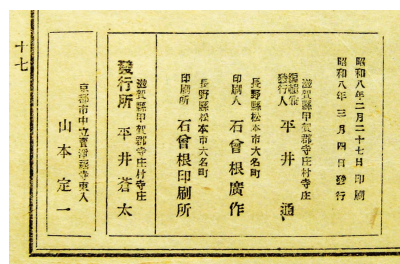 昭和八年二月二十七日印刷
昭和八年三月四日發行
滋賀縣甲賀郡寺庄村寺庄
編輯兼
發行人 平井通
長野縣松本市六名町
印刷人 石曾根廣作
長野縣松本市六名町
印刷所 石曾根印刷所
滋賀縣甲賀郡寺庄村寺庄
發行所 平井蒼太
京都市中立賣淨福寺東入
山本定一
十七